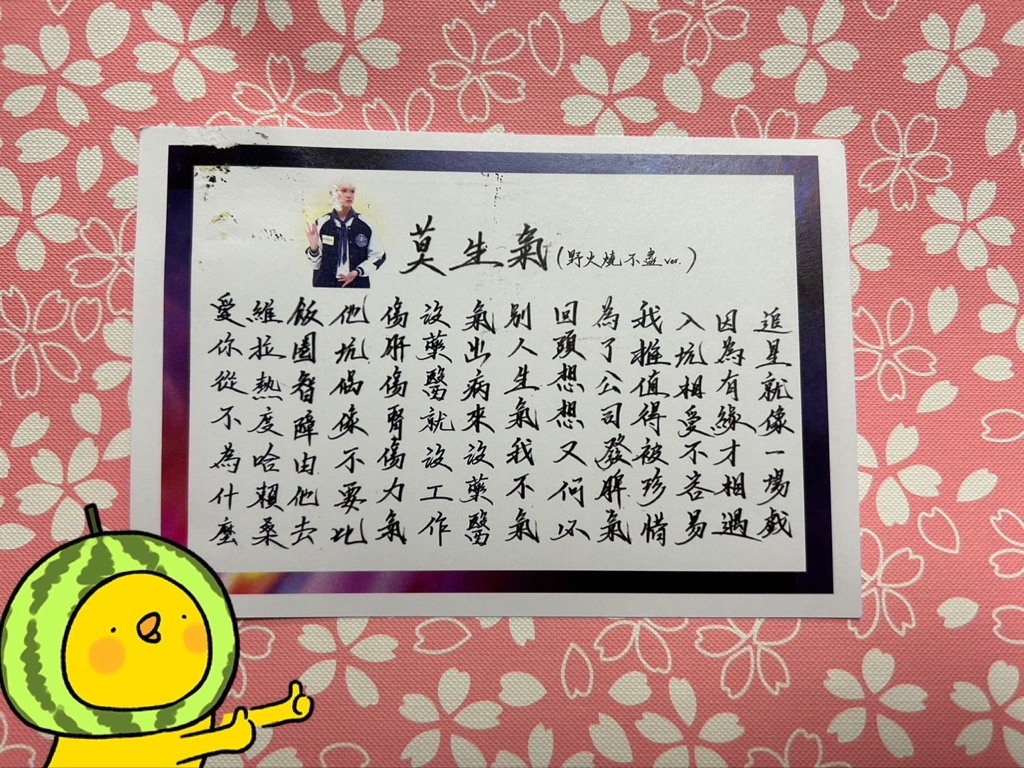 莫生氣(野火燒不盡ver.)
追星就像一場戲
因為有緣才相遇
入坑相受不容易
我推值得被珍惜
為了公司發脾氣
回頭想想又何必
別人生氣我不氣
氣出病來沒藥醫
沒藥醫就沒工作
傷肝傷腎傷力氣
他坑偶像不要比
飯圈智障由他去
維拉熱度哈賴桑
愛你從不為什麼